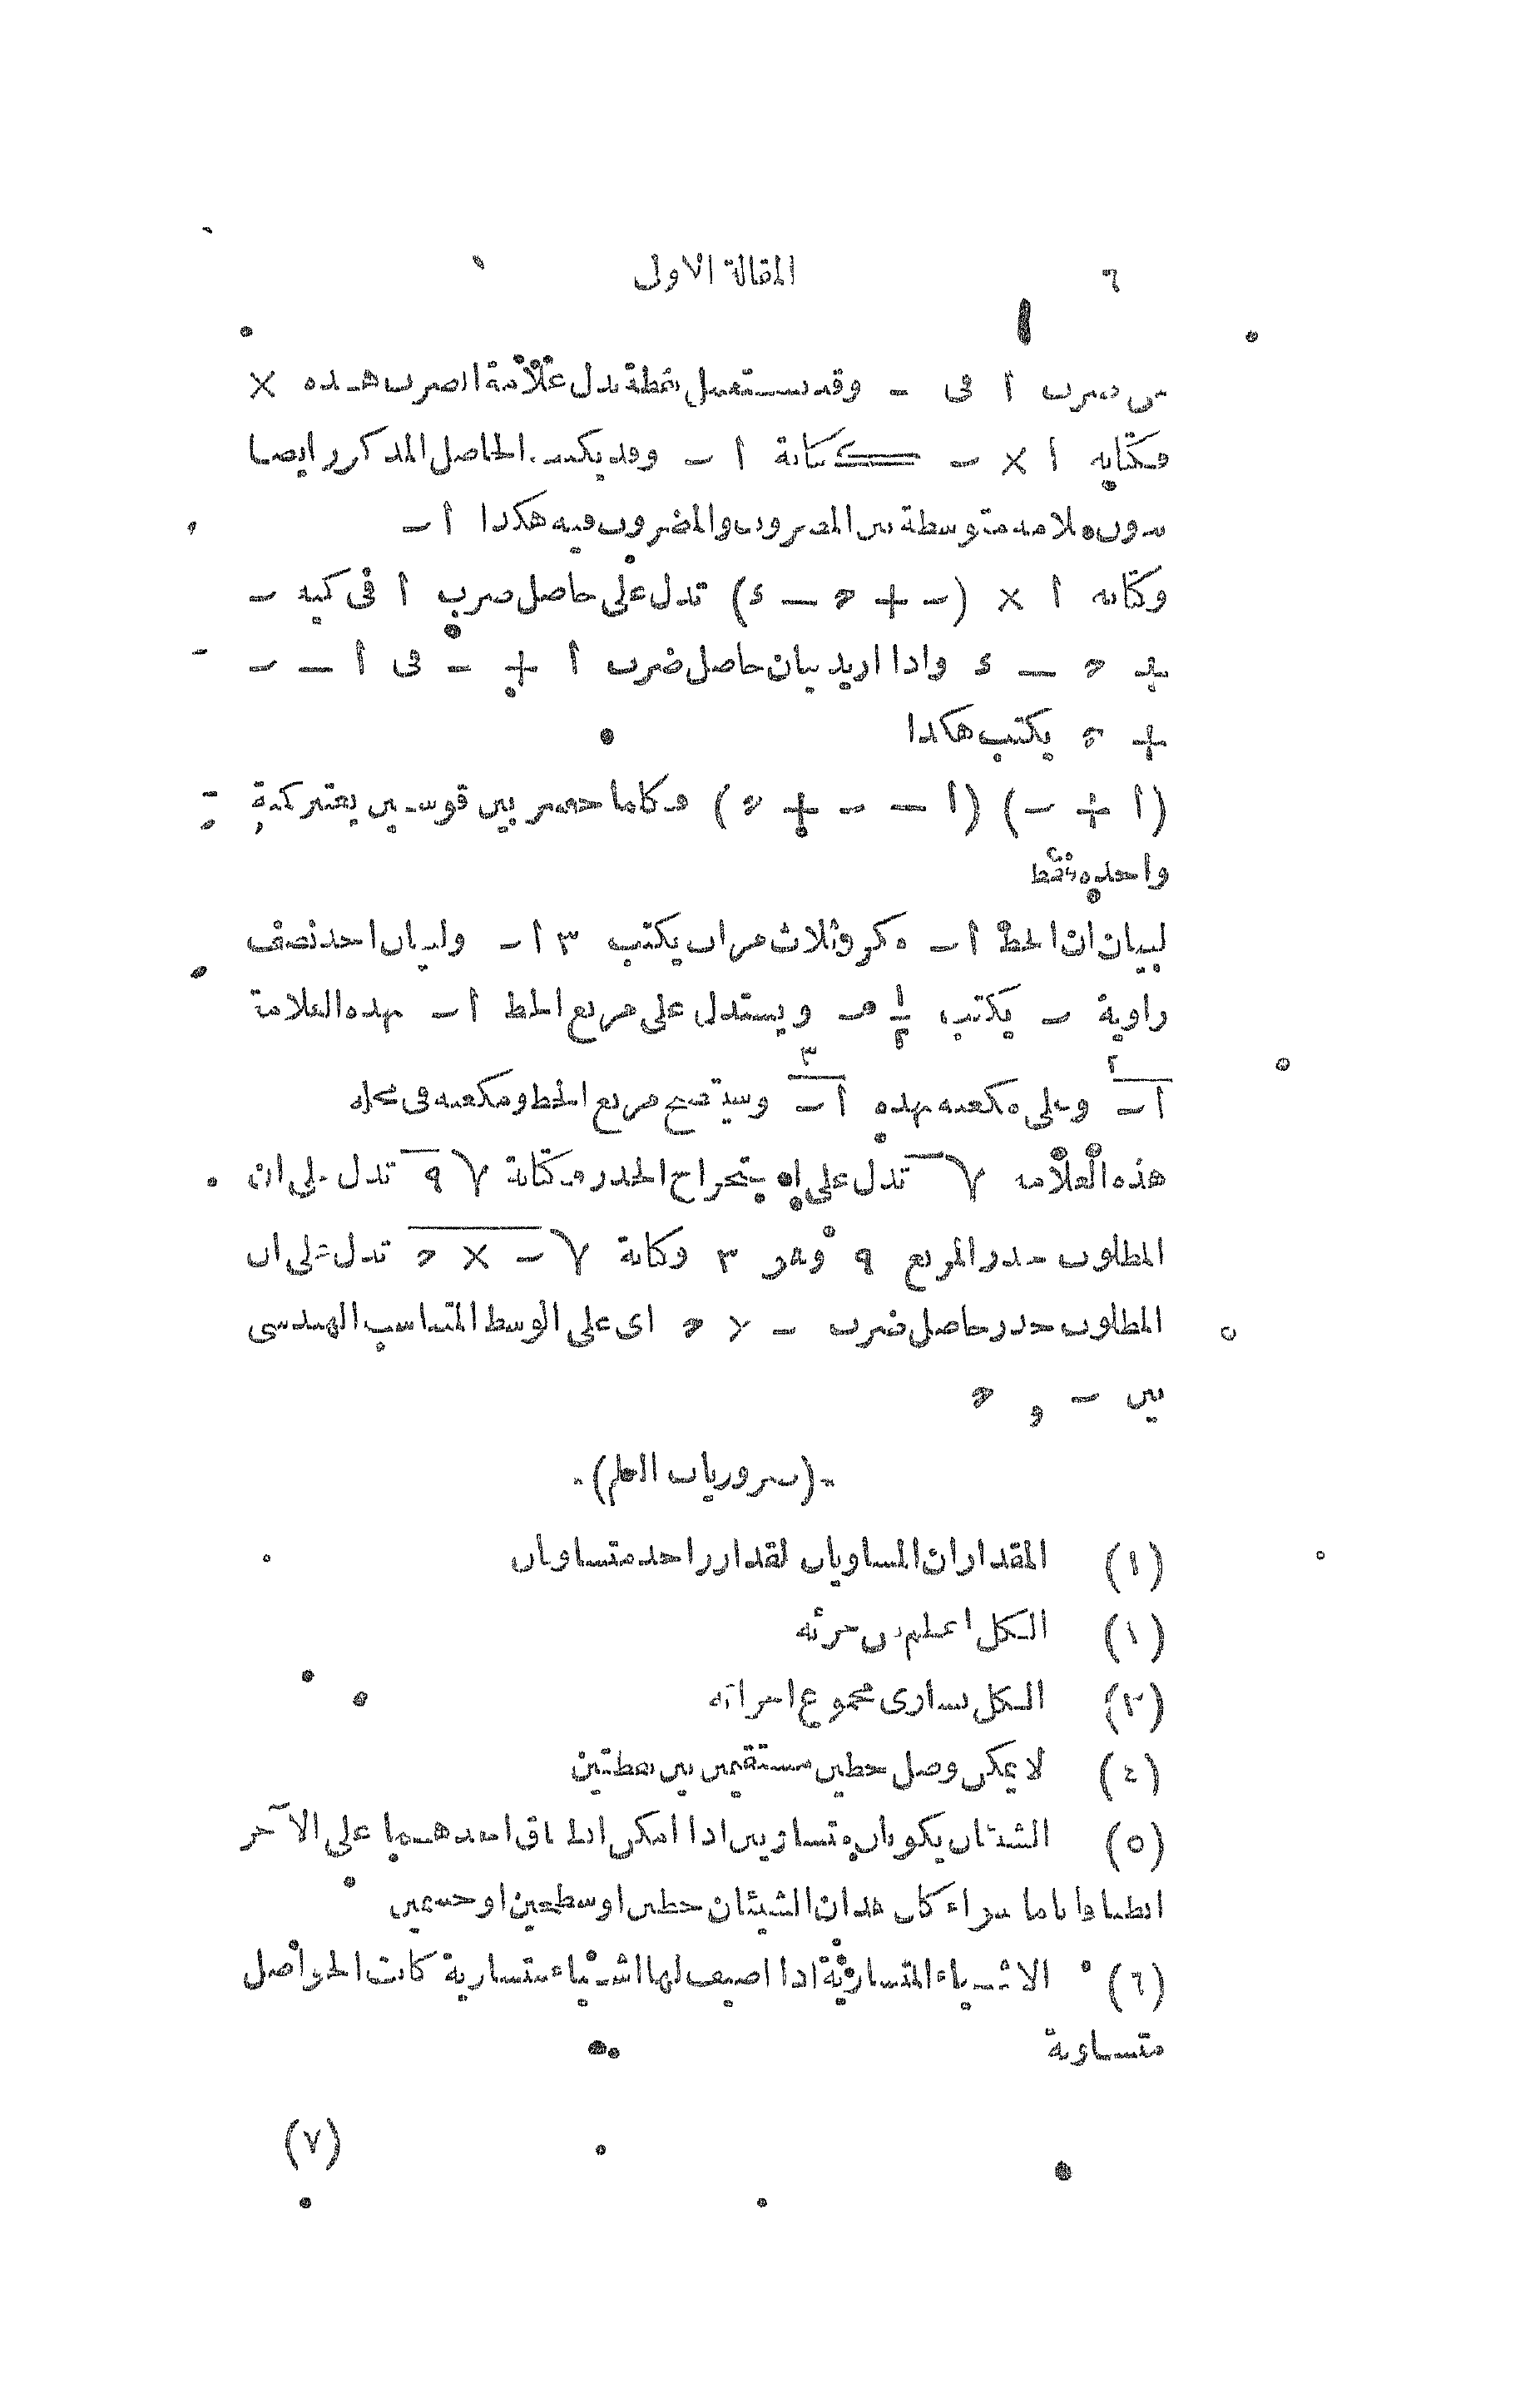 ٦ المقالة الاولى
من ضرب أ فى ب وقد يستعمل نقطة بدل علامة الضرب هذه ×
فكتابه أ × ب ككتابة أ ب وقد يكتب الحاصل المذكور ايضا
بدون علامه متوسطة بين المضروب والمضروب فيه هكذا أ ب
وكتابه أ × (ب + ح − ء) تدل على حاصل ضرب أ فى كميه ب
+ ح − ء واذا اريد بيان حاصل ضرب أ + ب فى أ − ب
+ ح يكتب هكذا
(أ + ب) (أ − ب + ح) فكلما حصر بين قوسين يعتبر كمية
واحده فقط
لبيان ان الخط أ ب مكرر ثلاث مرات يكتب ٣ أ ب ولبيان احد نصف
زاوية ب يكتب ١/٢ ب ويستدل على مربع الخط أ ب بهذه العلامة
أ ب ٢ وعلى مكعبه بهذه أ ب ٣ وسيتضح مربع الخط ومكعبه فى محله
هذه العلامه √ تدل على استخراج الجذر فكتابة √٩ تدل على ان
المطلوب جذر المربع ٩ وهو ٣ وكتابة √ب × ح تدل على ان
المطلوب جذر حاصل ضرب ب × ح اى على الوسط المتناسب الهندسى
بين ب و ح
(ضروريات العلم)
(١) المقداران المساويان لمقدار واحد متساويان
(٢) الكل اعظم من جزئه
(٣) الكل يساوى مجموع اجزائه
(٤) لا يمكن وصل خطين مستقيمين بين نقطتين
(٥) الشيئان يكونان متساويين اذا امكن انطباق احدهما على الآخر
انطباقا تاما سواء كان هذان الشيئان خطين او سطحين او جسمين
(٦) الاشياء المتساوية اذا اضيف لها اشياء متساوية كانت الحواصل
متساوية
(٧)